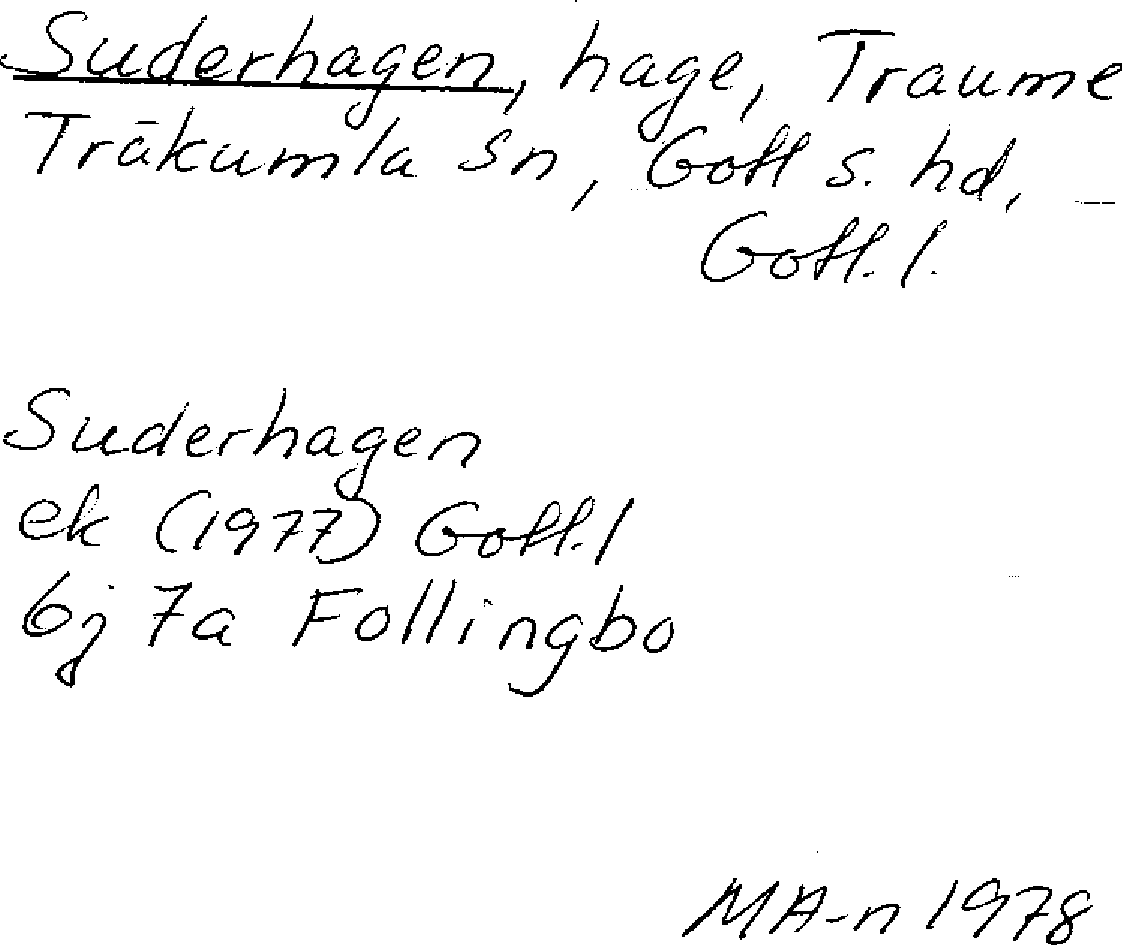 Suderhagen, hage, Traume
Träkumla sn, Gotl s. hd,
Gotl. l.
Suderhagen
ek (1977) Gotl. l
6j 7a Follingbo
MA-n 1978